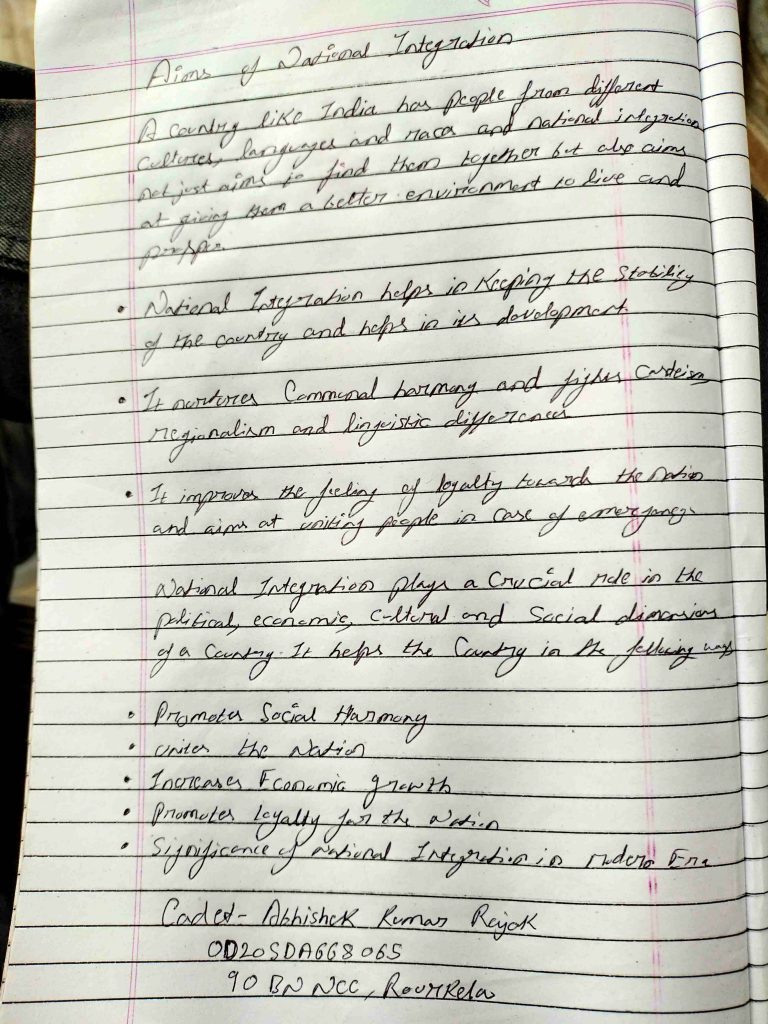 Aims of National Integration
A country like India has people from different
cultures, languages and races and national integration
not just aims to find them together but also aims
at giving them a better environment to live and
prosper.
• National Integration helps in Keeping the Stability
of the country and helps in its development.
• It nurtures Communal harmony and fights Casteism
regionalism and linguistic differences
• It improves the feeling of loyalty towards the nation
and aims at uniting people in case of emergency.
National Integration plays a Crucial role in the
political, economic, cultural and Social dimensions
of a Country. It helps the Country in the following ways
• Promotes Social Harmony
• unites the Nation
• Increases Economic growth
• Promotes loyalty for the Nation
• Significance of National Integration in modern Era
Cadet- Abhishek Kumar Rajak
OD20SDA668065
90 BN NCC, Rourkela